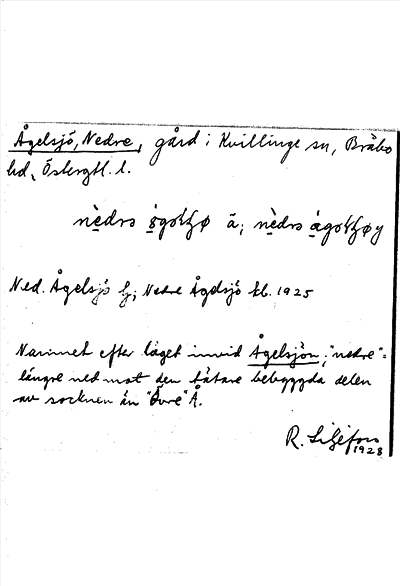 Ågelsjö, Nedre, gård i Kvillinge sn, Bråbo
hd, Östergtl. l.
Ned. Ågelsjö Gj; Nedre Ågelsjö tl. 1925
Namnet efter läget invid Ågelsjön; "nedre" =
längre ned mot den tätare bebyggda delen
av socknen än "Övre" Å.
R. Liljefors
1928